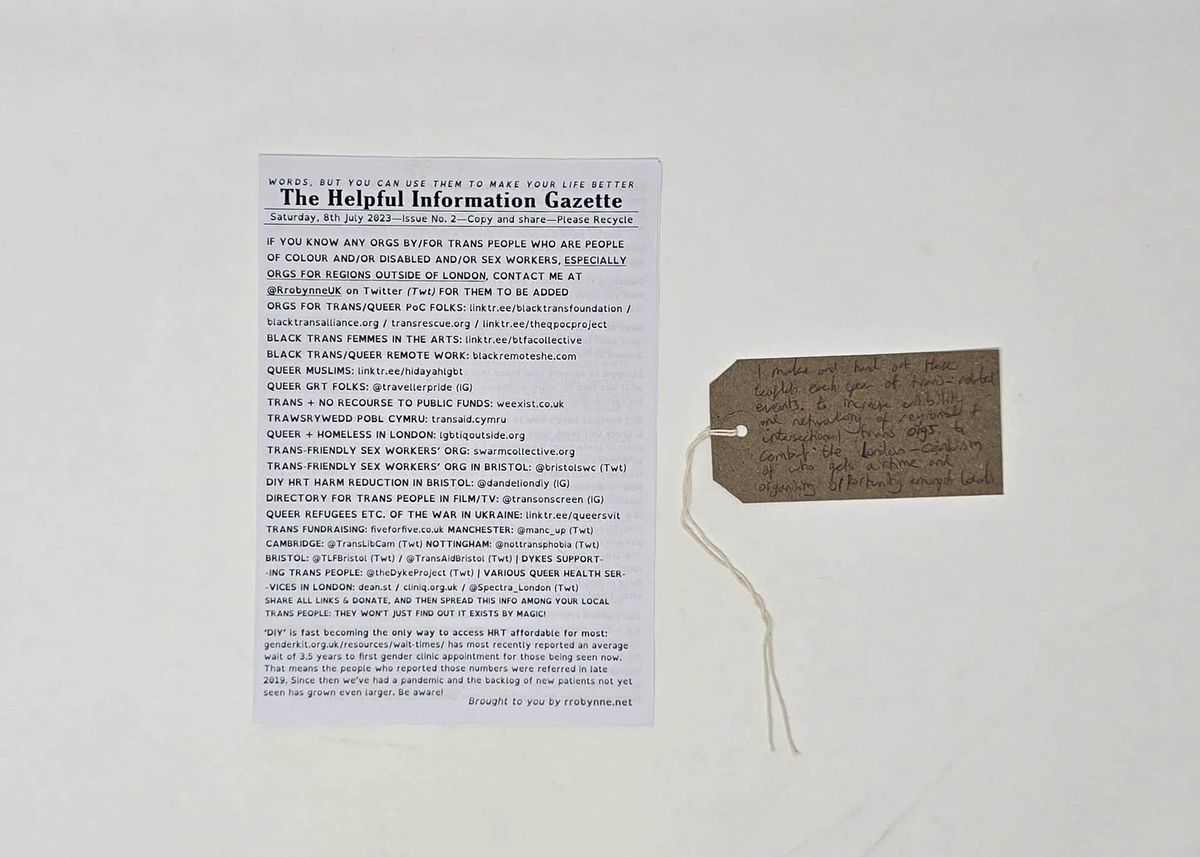 WORDS, BUT YOU CAN USE THEM TO MAKE YOUR LIFE BETTER
The Helpful Information Gazette
Saturday, 8th July 2023—Issue No. 2—Copy and share—Please Recycle
IF YOU KNOW ANY ORGS BY/FOR TRANS PEOPLE WHO ARE PEOPLE
OF COLOUR AND/OR DISABLED AND/OR SEX WORKERS, ESPECIALLY
ORGS FOR REGIONS OUTSIDE OF LONDON, CONTACT ME AT
@RrobynneUK on Twitter (Twt) FOR THEM TO BE ADDED
ORGS FOR TRANS/QUEER PoC FOLKS: linktr.ee/blacktransfoundation /
blacktransalliance.org / transrescue.org / linktr.ee/theqpocproject
BLACK TRANS FEMMES IN THE ARTS: linktr.ee/btfacollective
BLACK TRANS/QUEER REMOTE WORK: blackremoteshe.com
QUEER MUSLIMS: linktr.ee/hidayahlgbt
QUEER GRT FOLKS: @travellerpride (IG)
TRANS + NO RECOURSE TO PUBLIC FUNDS: weexist.co.uk
TRAWSRYWEDD POBL CYMRU: transaid.cymru
QUEER + HOMELESS IN LONDON: lgbtiqoutside.org
TRANS-FRIENDLY SEX WORKERS' ORG: swarmcollective.org
TRANS-FRIENDLY SEX WORKERS' ORG IN BRISTOL: @bristolswc (Twt)
DIY HRT HARM REDUCTION IN BRISTOL: @dandeliondiy (IG)
DIRECTORY FOR TRANS PEOPLE IN FILM/TV: @transonscreen (IG)
QUEER REFUGEES ETC. OF THE WAR IN UKRAINE: linktr.ee/queersvit
TRANS FUNDRAISING: fiveforfive.co.uk MANCHESTER: @manc_up (Twt)
CAMBRIDGE: @TransLibCam (Twt) NOTTINGHAM: @nottransphobia (Twt)
BRISTOL: @TLFBristol (Twt) / @TransAidBristol (Twt) | DYKES SUPPORT-
-ING TRANS PEOPLE: @theDykeProject (Twt) | VARIOUS QUEER HEALTH SER-
-VICES IN LONDON: dean.st / cliniq.org.uk / @Spectra_London (Twt)
SHARE ALL LINKS & DONATE, AND THEN SPREAD THIS INFO AMONG YOUR LOCAL
TRANS PEOPLE: THEY WON'T JUST FIND OUT IT EXISTS BY MAGIC!
'DIY' is fast becoming the only way to access HRT affordable for most:
genderkit.org.uk/resources/wait-times/ has most recently reported an average
wait of 3.5 years to first gender clinic appointment for those being seen now.
That means the people who reported those numbers were referred in late
2019. Since then we've had a pandemic and the backlog of new patients not yet
seen has grown even larger. Be aware!
Brought to you by rrobynne.net
I make and hand out these
leaflets each year at trans-related
events, to increase visibility
and networking of regional &
intersectional trans orgs to
combat the London-centrism
of who gets airtime and
organising opportunity amongst locals.